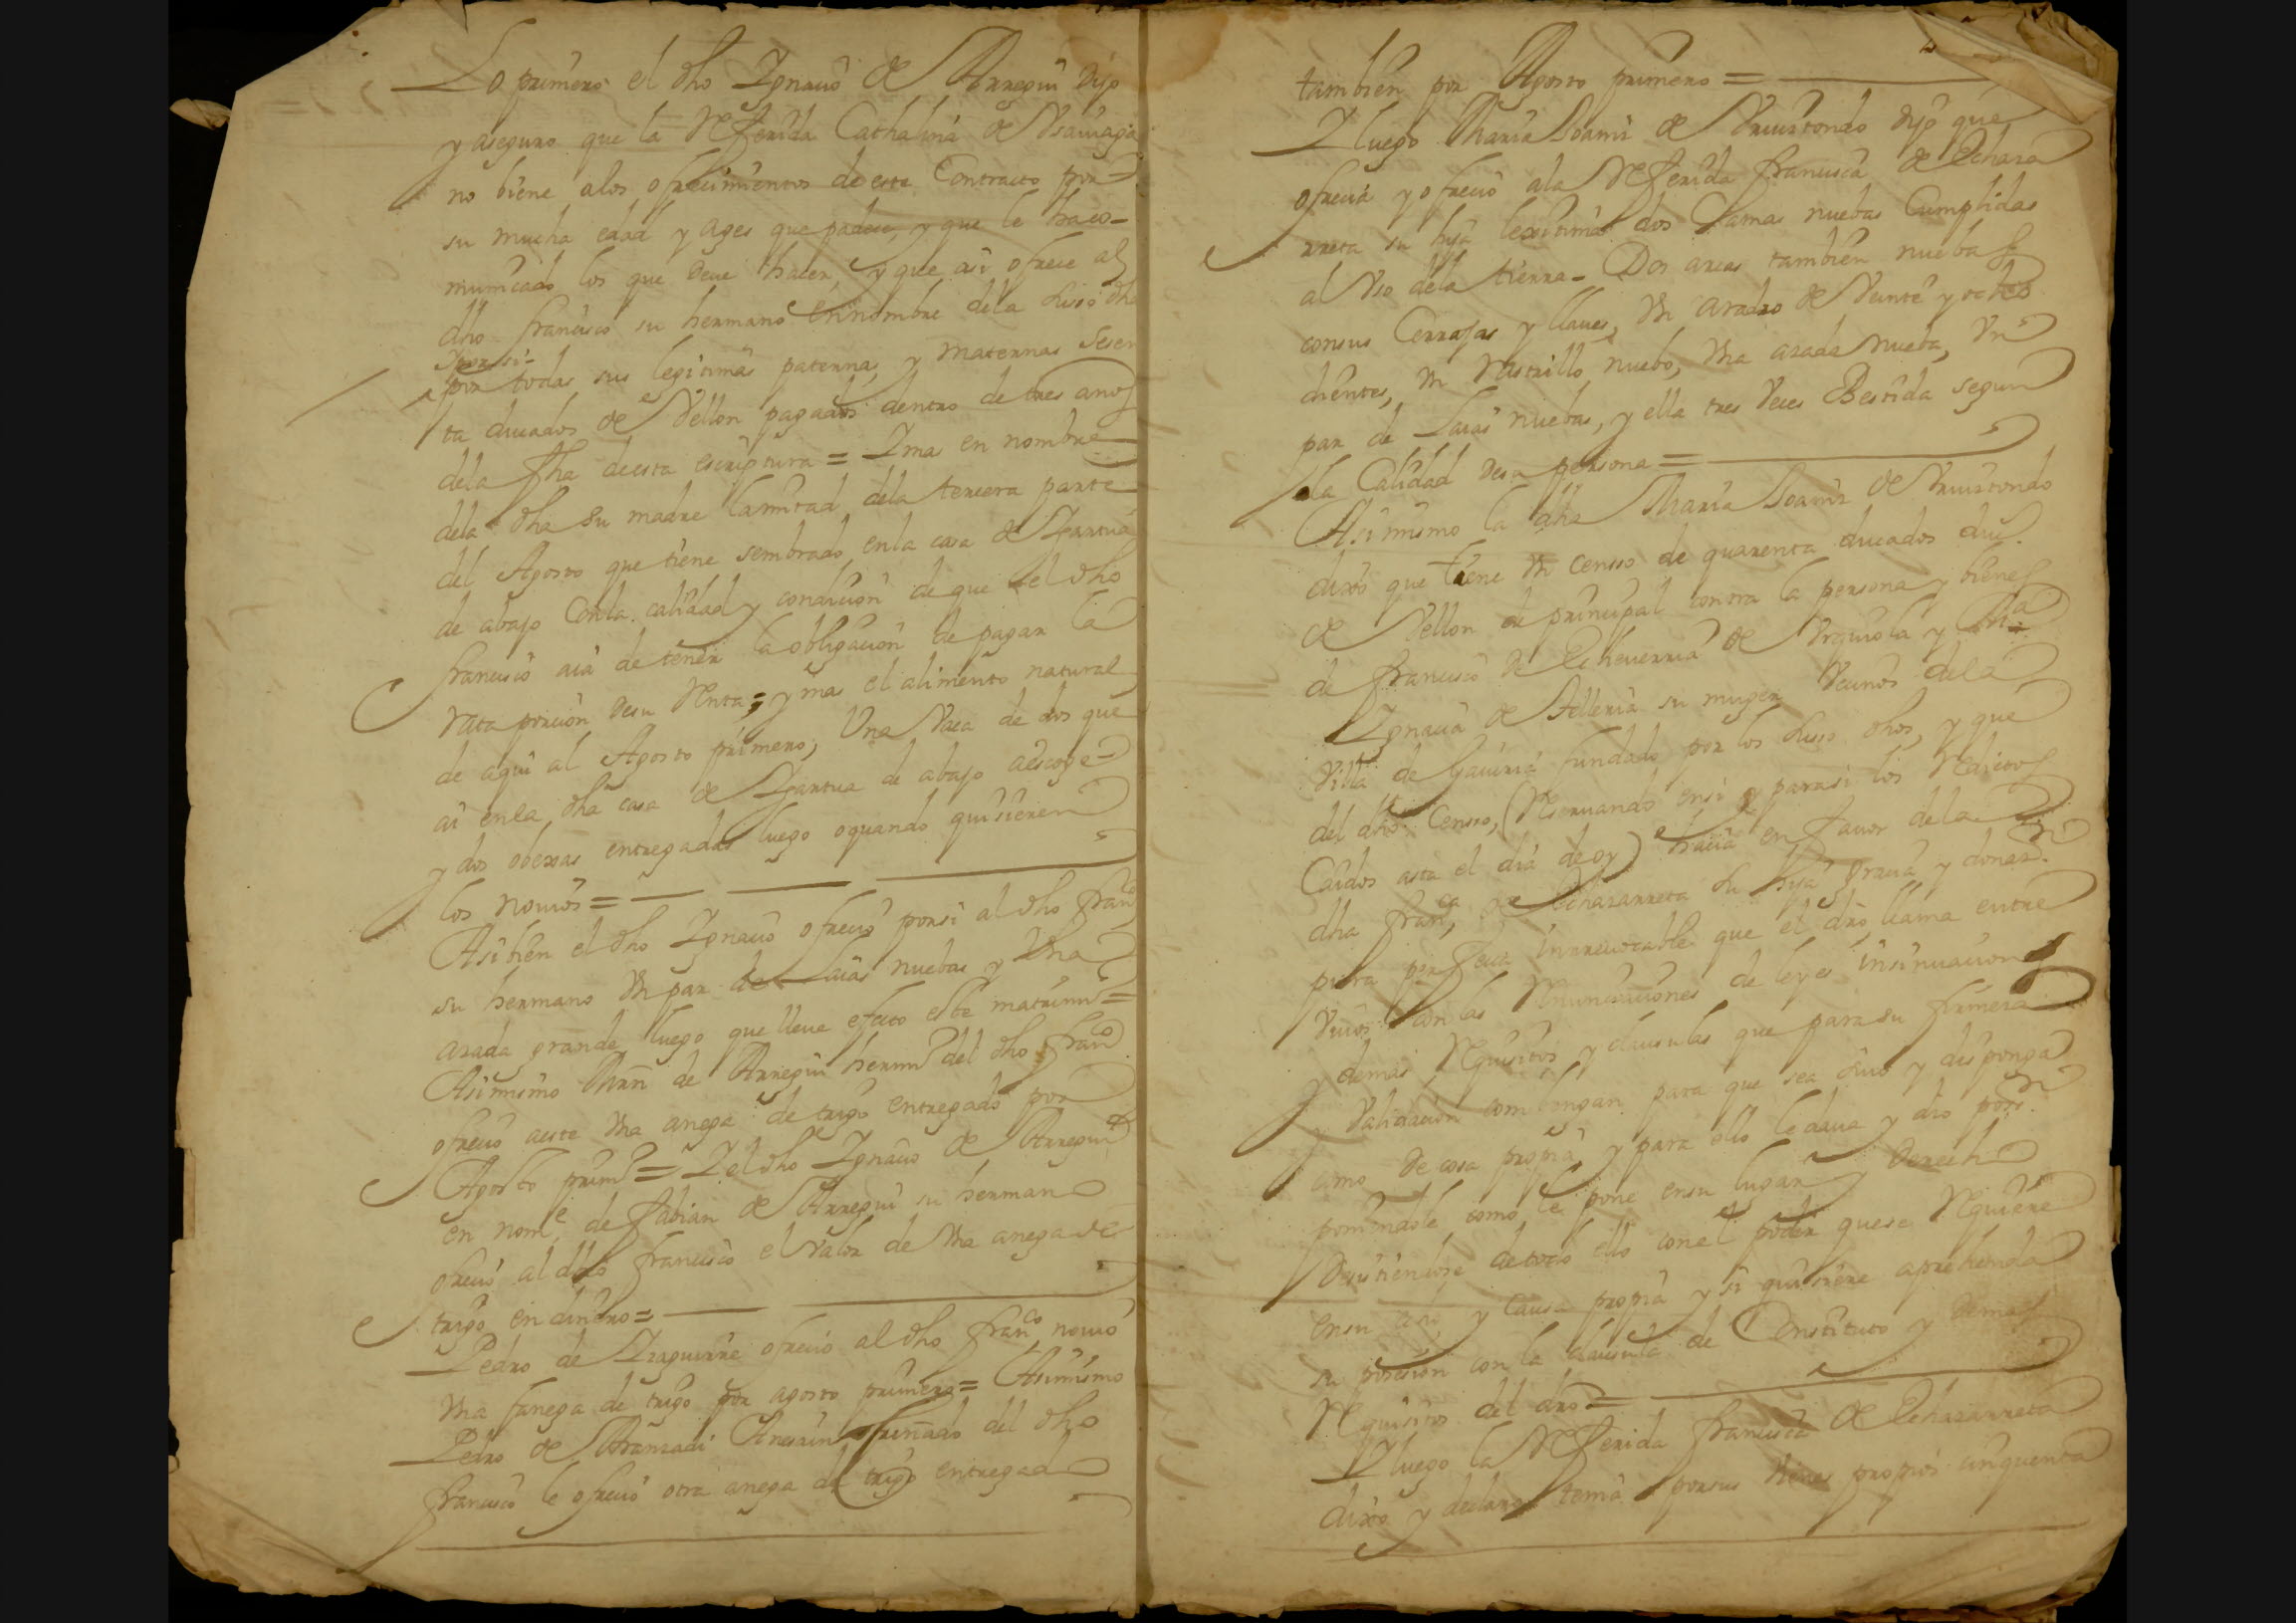 Lo primero el dho Ignacio de Arregui dijo
y aseguro que la Referida Cathalina de Vsarraga
no biene alos ofrecimientos de este Contracto por
su mucha edad y ages que padece, y que le ha co-
municado los que deve hacer, y que asi ofrece al
dho francisco su hermano en nombre dela suso dha
y por si
por todas sus legitimas paterna, y maternas Sesen
ta ducados de Vellon pagados dentro de tres años
dela fha de esta escriptura = Y mas en nombre
dela dha su madre la mitad dela tercera parte
del Agosto que tiene sembrado en la casa de Ygartua
de abajo con la calidad y condicion de que el dho
francisco aia de tener la obligacion de pagar la
rata porcion de su Renta; y mas el alimento natural
de aqui al Agosto primero, Una Vaca de dos que
ai en la dha casa de Ygartua de abajo a escoge-
y dos obexas entregadas luego o quando quisieren
los novios =
Asibien el dho Ignacio ofrecio por si al dho franco
su hermano Vn par de Laias nuebas y Vna
azada grande luego que lleve efecto este matrimo =
Asimismo Mrn de Arregui hermo del dho franco
ofrecio a este Vna anega de trigo entregado por
Agosto primo = Y el dho Ignacio de Arregui
en nome de fabian de Arregui su hermano
ofrecio al dho francisco el Valor de Vna anega de
trigo en dinero =
Pedro de Yzaguirre ofrecio al dho franco novio
Vna fanega de trigo por agosto primero = Asimismo
Pedro de Aranzadi cuñado del dho
francisco le ofrecio otra anega de trigo entregado
tambien por Agosto primero =
Y luego Maria Joaniz de Vrruztondo dijo que
ofrecia y ofrecio ala Referida francisca de Echaza
rreta su hija lexitima dos Camas nuebas Cumplidas
al Vso dela tierra - Dos arcas tambien nuebas
con sus Cerrajas y llaues, Vn aradro de Veinte y ocho
dientes, Vn Rastrillo nuebo, Vna azada nueba, Vn
par de Laias nuebas, y ella tres Veces Bestida segun
la Calidad de su persona =
Asimismo la dha Maria Joaniz de Vrruztondo
dixo que tiene Vn censso de quarenta ducados duc.
de Vellon de principal contra la persona y bienes
de francisco de Echeuerria de Vrquiola y Ma
Ygnacia de Telleria su muger Vecinos dela
Villa de Gaviria fundado por los suso dhos, y que
del dho Censso, (Reseruando en si y para si los Reditos
Caidos asta el dia de oy) hacia en fauor dela
dha franca de Echazarreta su hija gracia y donaon
pura perfecta inrrevocable que el dro llama entre
viuos con las Renunciaciones de leyes insinuacion
y demas Requisitos y clausulas que para su firmeza
y Validacion combengan para que sea suio y disponga
como de cosa propia y para ello le daua y dio poder
ponindole como le pone en su lugar y Derecho
Desistiendose de todo ello con el poder que se Requiere
en su dro y Causa propia y si quisiere aprehenda
su posesion con la clausula de Constituto y demas
Requisitos del dro =
Y luego la Referida francisca de Echazarreta
dixo y declaro tenia por sus bienes propios cinquenta